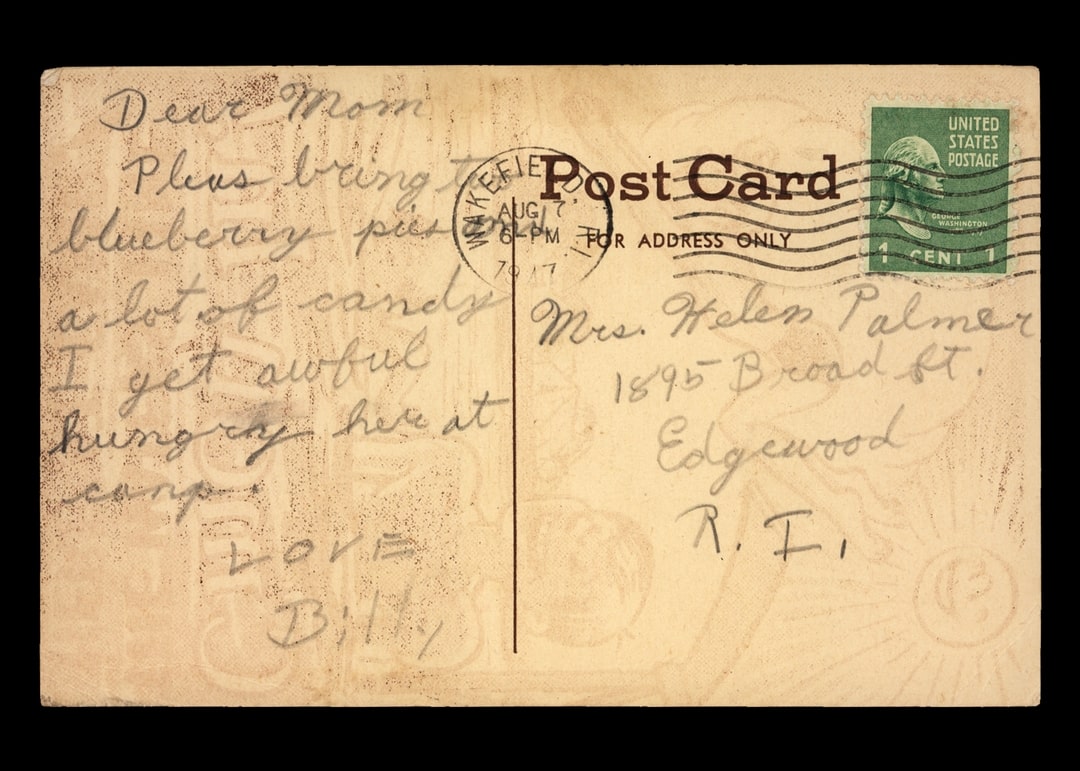 Dear Mom
Pleas bring two
blueberry pies and
a lot of candy
I get awful
hungry here at
camp.
LOVE
Billy
WAKEFIELD
AUG 7
6-PM
1947
R.I.
Post Card
FOR ADDRESS ONLY
UNITED
STATES
POSTAGE
GEORGE
WASHINGTON
1 CENT 1
Mrs. Helen Palmer
1895 Broad St.
Edgewood
R. I.